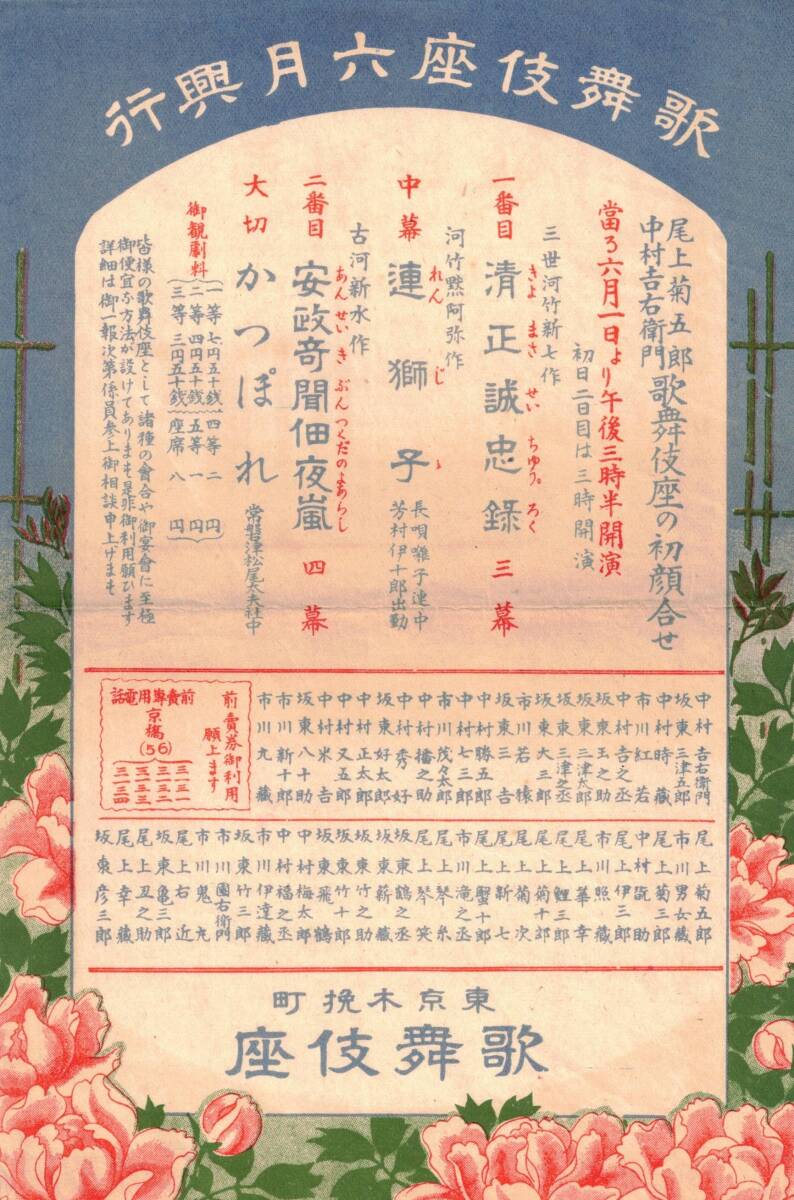 歌舞伎座六月興行
尾上菊五郎
中村吉右衛門
歌舞伎座の初顔合せ
當ろ六月一日より午後三時半開演
初日二日目は三時開演
三世河竹新七作
一番目 清正誠忠錄 三幕
きよまさせいちゆうろく
河竹黙阿弥作
中幕 連獅子
れんじゝ
長唄囃子連中
芳村伊十郎出勤
古河新水作
二番目 安政奇聞佃夜嵐 四幕
あんせいきぶんつくだのよあらし
大切 かつぽれ
常磐津松尾太夫社中
御観劇料
一等 七円五十銭
二等 四円五十銭
三等 三円五十銭
四等 二円
五等 一円
座席 八円
皆様の歌舞伎座として諸種の會合や御宴會に至極
御便宜な方法が設けてあります是非御利用願ひます
詳細は御一報次第係員参上御相談申上げます
中村吉右衛門
坂東三津五郎
中村時藏
市川紅若
中村吉之丞
坂東玉之助
坂東三津太郎
坂東三津之丞
坂東大三郎
市川若猿
坂東三吉
中村勝五郎
中村七三郎
市川茂々太郎
中村播之助
中村秀好
坂東好太郎
中村正太郎
中村又五郎
中村米吉
坂東八十助
市川新十郎
市川九藏
前賣券御利用
願上ます
前賣專用電話
京橋
(56)
三一三一
三一三二
三一三三
三一三四
尾上菊五郎
市川男女藏
尾上菊三郎
中村翫助
尾上伊三郎
市川照藏
尾上華幸
尾上鯉三郎
尾上菊十郎
尾上菊次
尾上新七
尾上蟹十郎
市川滝之丞
尾上琴糸
尾上琴笑
坂東鶴之丞
坂東薪藏
坂東竹之助
坂東竹十郎
坂東飛鶴
中村梅太郎
中村福之丞
市川伊達藏
坂東竹三郎
市川團右衛門
市川鬼丸
尾上右近
坂東亀三郎
尾上丑之助
尾上幸藏
坂東彦三郎
東京木挽町
歌舞伎座